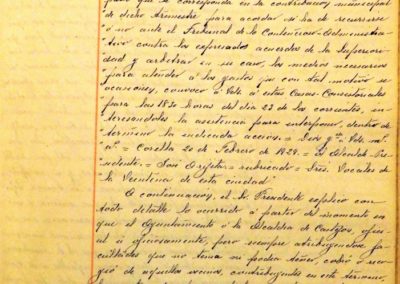 que le corresponda en la contribución municipal
de dicho trimestre, para acordar si ha de recurrirse
o no ante el Tribunal de lo Contencioso-Administra-
tivo contra los expresados acuerdos de la Superiori-
dad y arbitrar en su caso, los medios necesarios
para atender a los gastos que con tal motivo se
ocasionen, convoco a Vds. a estas Casas-Consistoriales
para las 18:30 horas del día 22 de los corrientes, in-
teresándoles la asistencia para interponer, dentro de
término la indicada acción. = Dios gde. a Vds. ms.
as. = Corella 20 de Febrero de 1929. = El Alcalde-Pre-
sidente. = José = rubricado = Sres. Vocales de
la Veintena de esta ciudad"
A continuación, el Sr. Presidente explicó con
todo detalle lo ocurrido a partir del momento en
que el Ayuntamiento o la Alcaldía de Castejón, oficial
u oficiosamente, pero siempre atribuyéndose fa-
cultades que no tenía ni podía tener, cobró o reco-
gió de aquellos vecinos, contribuyentes en este término,